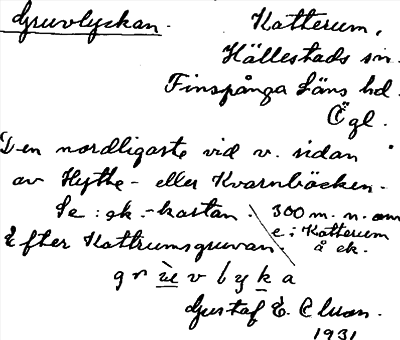 Gruvlyckan.
Katterum,
Hällestads sn.
Finspånga Läns hd.
Ögl.
Den nordligaste vid v. sidan
av Hytte- eller Kvarnbäcken.
Se: ek.-kartan. 300 m. n. om
e i Katterum
å ek.
Efter Kattrumsgruvan.
Gustaf E. Cluon.
1931